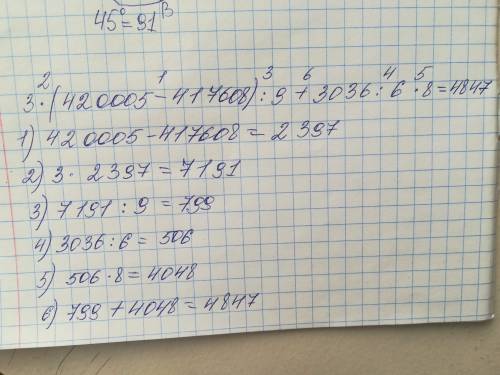 45° = 91 β
2 1 3 6 4 5
3 · (420005 - 417608) : 9 + 3036 : 6 · 8 = 4847
1) 420005 - 417608 = 2397
2) 3 · 2397 = 7191
3) 7191 : 9 = 799
4) 3036 : 6 = 506
5) 506 · 8 = 4048
6) 799 + 4048 = 4847